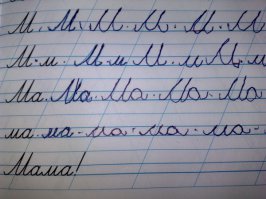 М. М. М. М. М. М. М
М. м. М. м. М. м М. м
Ма. Ма. Ма. Ма. Ма
ма. ма - ма. ма. ма -
Мама!